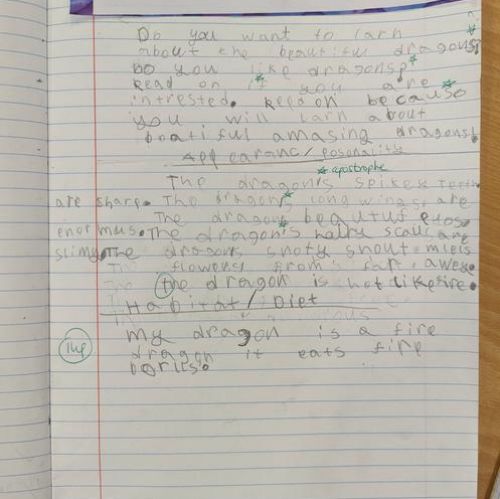 Do you want to larn
about the beautiful dragons?
Do you like dragons?
Read on if you are
intrested. Read on because
you will larn about
beatiful amasing dragons!
Appearanc/posonality
apostrophe
The dragon's spikes Teeth
are sharp. The dragons long wings are
The dragons beautus eyes
enormus. The dragon's hairy scalls are
slimy. The dragons snoty snout
flowers from far away
the dragon is hot like fire.
Habitat/Diet
My dragon is a fire
dragon it eats fire
The